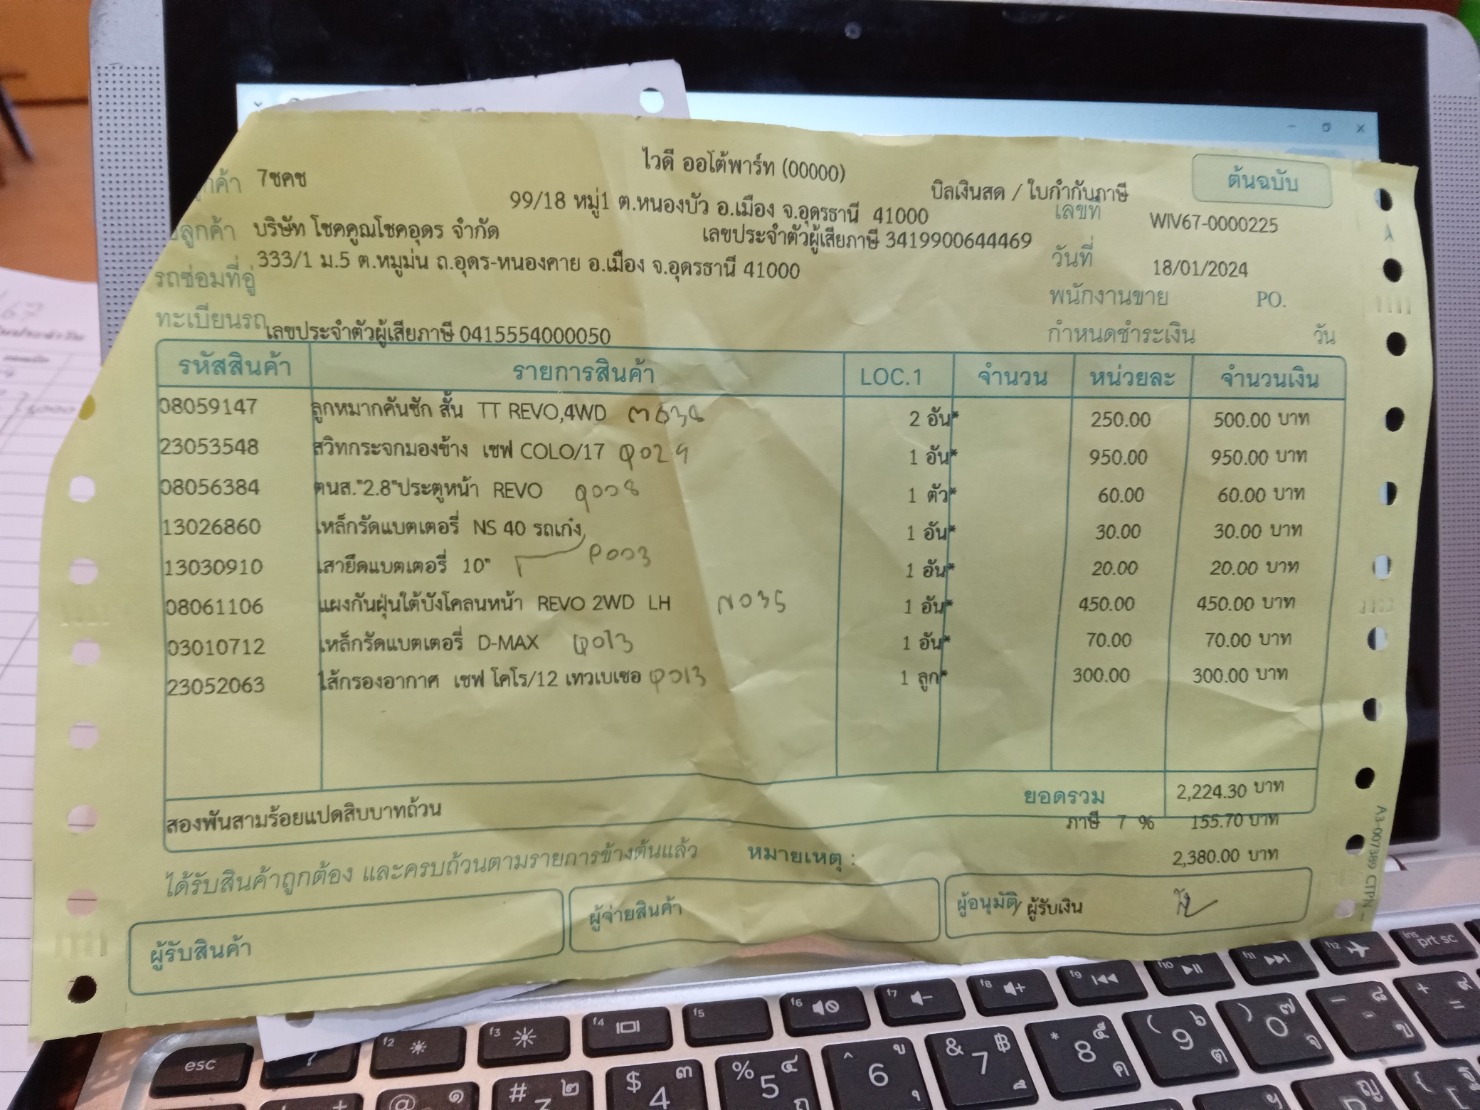 ไวดี ออโต้พาร์ท (00000)
ต้นฉบับ
ลูกค้า 7ชคช
99/18 หมู่1 ต.หนองบัว อ.เมือง จ.อุดรธานี 41000
บิลเงินสด / ใบกำกับภาษี
ลูกค้า บริษัท โชคคูณโชคอุดร จำกัด
เลขประจำตัวผู้เสียภาษี 3419900644469
เลขที่ WIV67-0000225
333/1 ม.5 ต.หมูม่น ถ.อุดร-หนองคาย อ.เมือง จ.อุดรธานี 41000
วันที่ 18/01/2024
รถซ่อมที่อู่
พนักงานขาย PO.
ทะเบียนรถ เลขประจำตัวผู้เสียภาษี 0415554000050
กำหนดชำระเงิน วัน
รหัสสินค้า รายการสินค้า LOC.1 จำนวน หน่วยละ จำนวนเงิน
08059147 ลูกหมากคันชัก สั้น TT REVO,4WD 2 อัน* 250.00 500.00 บาท
23053548 สวิทกระจกมองข้าง เชฟ COLO/17 Q029 1 อัน* 950.00 950.00 บาท
08056384 ตนส."2.8"ประตูหน้า REVO Q008 1 ตัว* 60.00 60.00 บาท
13026860 เหล็กรัดแบตเตอรี่ NS 40 รถเก๋ง 1 อัน* 30.00 30.00 บาท
13030910 เสายึดแบตเตอรี่ 10" P003 1 อัน* 20.00 20.00 บาท
08061106 แผงกันฝุ่นใต้บังโคลนหน้า REVO 2WD LH N035 1 อัน* 450.00 450.00 บาท
03010712 เหล็กรัดแบตเตอรี่ D-MAX Q013 1 อัน* 70.00 70.00 บาท
23052063 ไส้กรองอากาศ เชฟ โคโร/12 เทวเบเซอ Q013 1 ลูก* 300.00 300.00 บาท
ยอดรวม 2,224.30 บาท
สองพันสามร้อยแปดสิบบาทถ้วน
ภาษี 7 % 155.70 บาท
ได้รับสินค้าถูกต้อง และครบถ้วนตามรายการข้างต้นแล้ว หมายเหตุ : 2,380.00 บาท
ผู้รับสินค้า ผู้จ่ายสินค้า ผู้อนุมัติ/ผู้รับเงิน
esc
prt sc